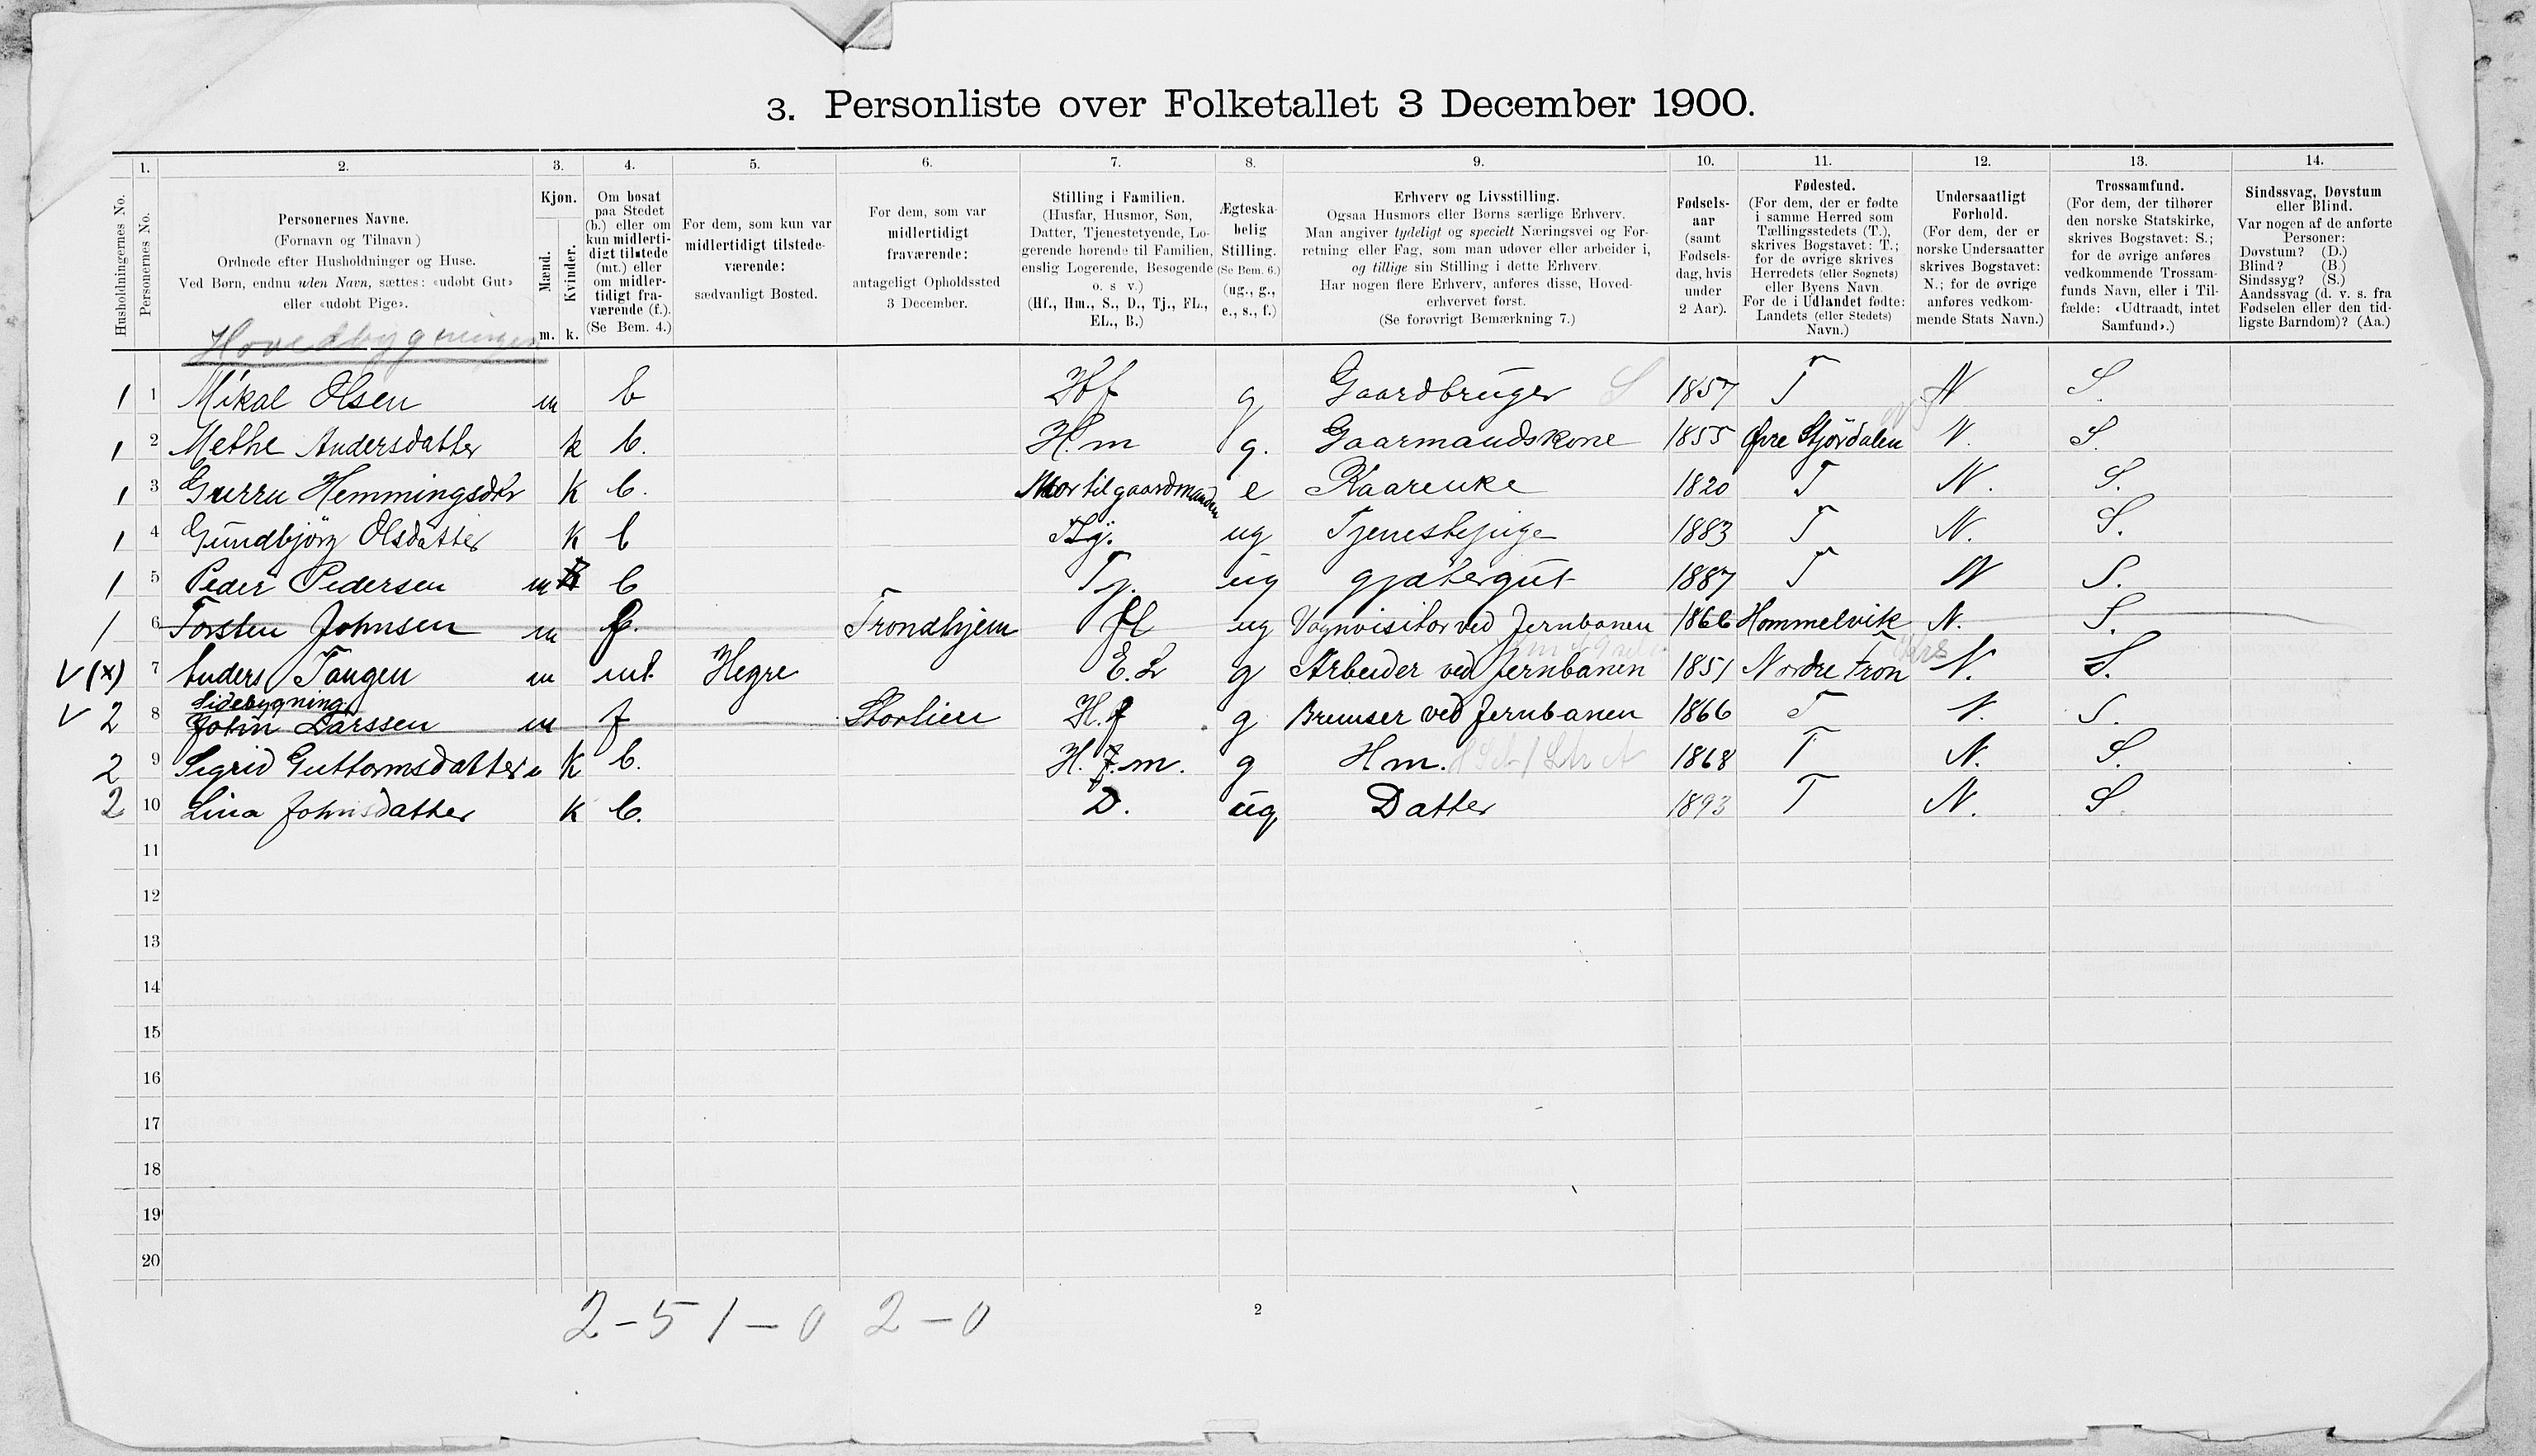 3. Personliste over Folketallet 3 December 1900.
1. 2. 3. 4. 5. 6. 7. 8. 9. 10. 11. 12. 13. 14.
Husholdningernes No.
Personernes No.
Personernes Navne.
(Fornavn og Tilnavn)
Ordnede efter Husholdninger og Huse.
Ved Børn, endnu uden Navn, sættes: «udøbt Gut»
eller «udøbt Pige».
Kjøn.
Mænd.
Kvinder.
m. k.
Om bosat
paa Stedet
(b.) eller om
kun midlerti-
digt tilstede
(mt.) eller
om midler-
tidigt fra-
værende (f.).
(Se Bem. 4.)
For dem, som kun var
midlertidigt tilstede-
værende:
sædvanligt Bosted.
For dem, som var
midlertidigt
fraværende:
antageligt Opholdssted
3 December.
Stilling i Familien.
(Husfar, Husmor, Søn,
Datter, Tjenestetyende, Lo-
gerende hørende til Familien,
enslig Logerende, Besøgende
o. s v.)
(Hf., Hm., S., D., Tj., FL.,
EL., B.)
Ægteska-
belig
Stilling.
(Se Bem. 6.)
(ug., g.,
e., s., f.)
Erhverv og Livsstilling.
Ogsaa Husmors eller Børns særlige Erhverv.
Man angiver tydeligt og specielt Næringsvei og For-
retning eller Fag, som man udøver eller arbeider i,
og tillige sin Stilling i dette Erhverv.
Har nogen flere Erhverv, anføres disse, Hoved-
erhvervet først.
(Se forøvrigt Bemærkning 7.)
Fødsels-
aar
(samt
Fødsels-
dag, hvis
under
2 Aar).
Fødested.
(For dem, der er fødte
i samme Herred som
Tællingsstedets (T.),
skrives Bogstavet: T.;
for de øvrige skrives
Herredets (eller Sognets)
eller Byens Navn.
For de i Udlandet fødte:
Landets (eller Stedets)
Navn.)
Undersaatligt
Forhold.
(For dem, der er
norske Undersaatter
skrives Bogstavet:
N.; for de øvrige
anføres vedkom-
mende Stats Navn.)
Trossamfund.
(For dem, der tilhører
den norske Statskirke,
skrives Bogstavet: S.;
for de øvrige anføres
vedkommende Trossam-
funds Navn, eller i Til-
fælde: «Udtraadt, intet
Samfund».)
Sindssvag, Døvstum
eller Blind.
Var nogen af de anførte
Personer:
Døvstum? (D.)
Blind? (B.)
Sindssyg? (S.)
Aandssvag (d. v. s. fra
Fødselen eller den tid-
ligste Barndom)? (Aa.)
Hovedbygningen
1 1 Mikal Olsen m b Hf g Gaardbruger S 1857 T N S.
1 2 Methe Andersdatter k b. H.m g. Gaarmandskone 1855 Øvre Stjördalen N. S.
1 3 Gurru Hemmingsdtr K b. Mor til gaardmanden e Kaarenke 1820 T N. S.
1 4 Gundbjörg Olsdatter K b Tj. ug Tjenestepige 1883 T N. S.
1 5 Peder Pedersen m b Tj. ug gjætergut 1887 T N S.
1 6 Torsten Johnsen m f. Trondhjem fl ug Vognvisitor ved Jernbanen 1866 Hommelvik N. S.
V (x) 7 Anders Tangen m mt Hegre E. L g Arbeider ved Jernbanen 1851 Nordre Fron N. S.
Sidebygning
V 2 8 John Larssen m f Storlien H. f g Bremser ved Jernbanen 1866 T N. S.
2 9 Sigrid Guttormsdatter K b. H. m. g Hm. 1868 T N. S.
2 10 Lina Johnsdatter K b. D. ug Datter 1893 T N. S
11
12
13
14
15
16
17
18
19
20
2-5 1-0 2-0
2